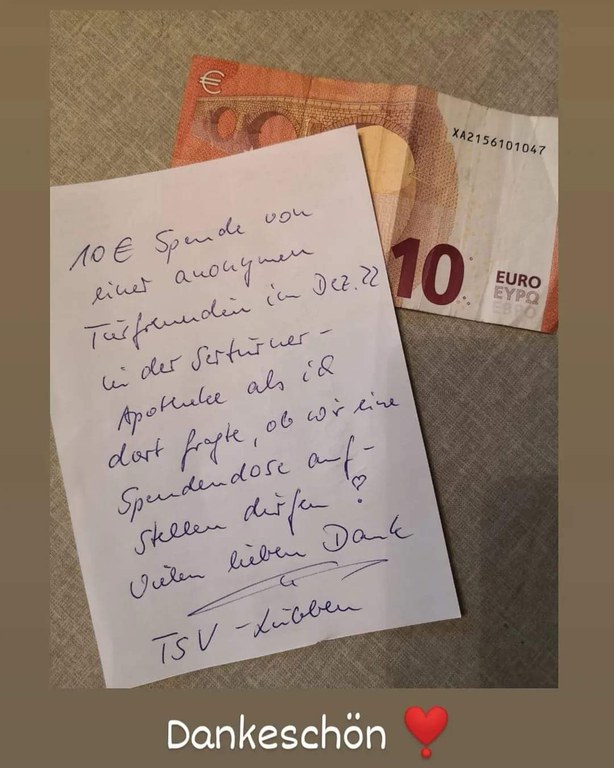 €
XA2156101047
10
EURO
ΕΥΡΩ
ЕВРО
10 € Spende von
einer anonymen
Tierfreundin im Dez. 22
in der Sertürner-
Apotheke als ich
dort fragte, ob wir eine
Spendendose auf-
stellen dürfen ?
Vielen lieben Dank
TSV - Lübben
Dankeschön ❣